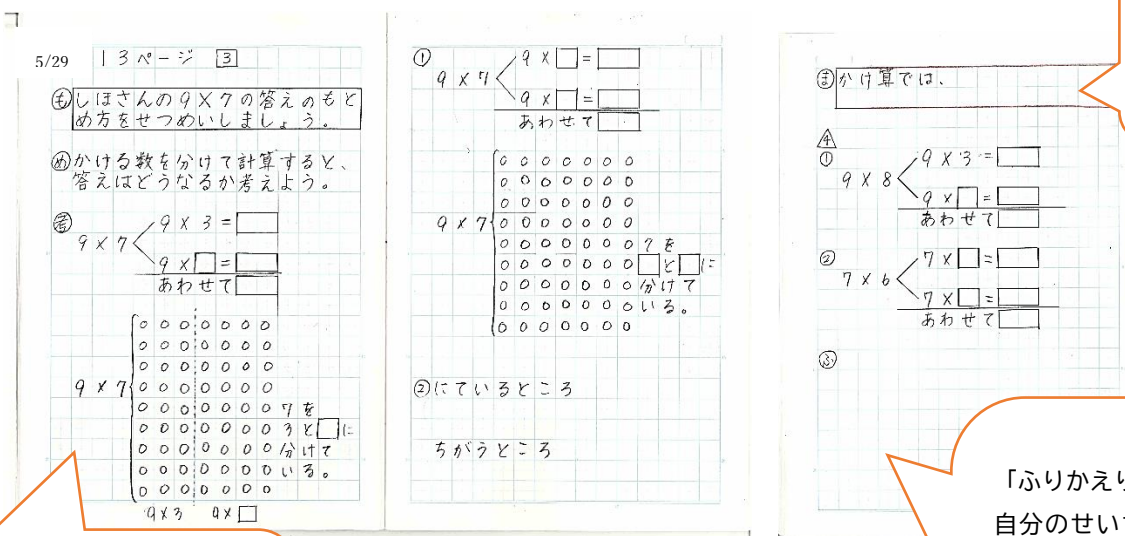 5/29 13ページ 3
も しほさんの9×7の答えのもと
め方をせつめいしましょう。
め かける数を分けて計算すると、
答えはどうなるか考えよう。
考
9×7
9×3=□
9×□=□
あわせて□
9×7
7を
3と□に
分けて
いる。
9×3 9×□
①
9×7
9×□=□
9×□=□
あわせて□
9×7
7を
□と□に
分けて
いる。
②にているところ
ちがうところ
ま かけ算では、
4
①
9×8
9×3=□
9×□=□
あわせて□
②
7×6
7×□=□
7×□=□
あわせて□
ふ
「ふりかえり
自分のせい